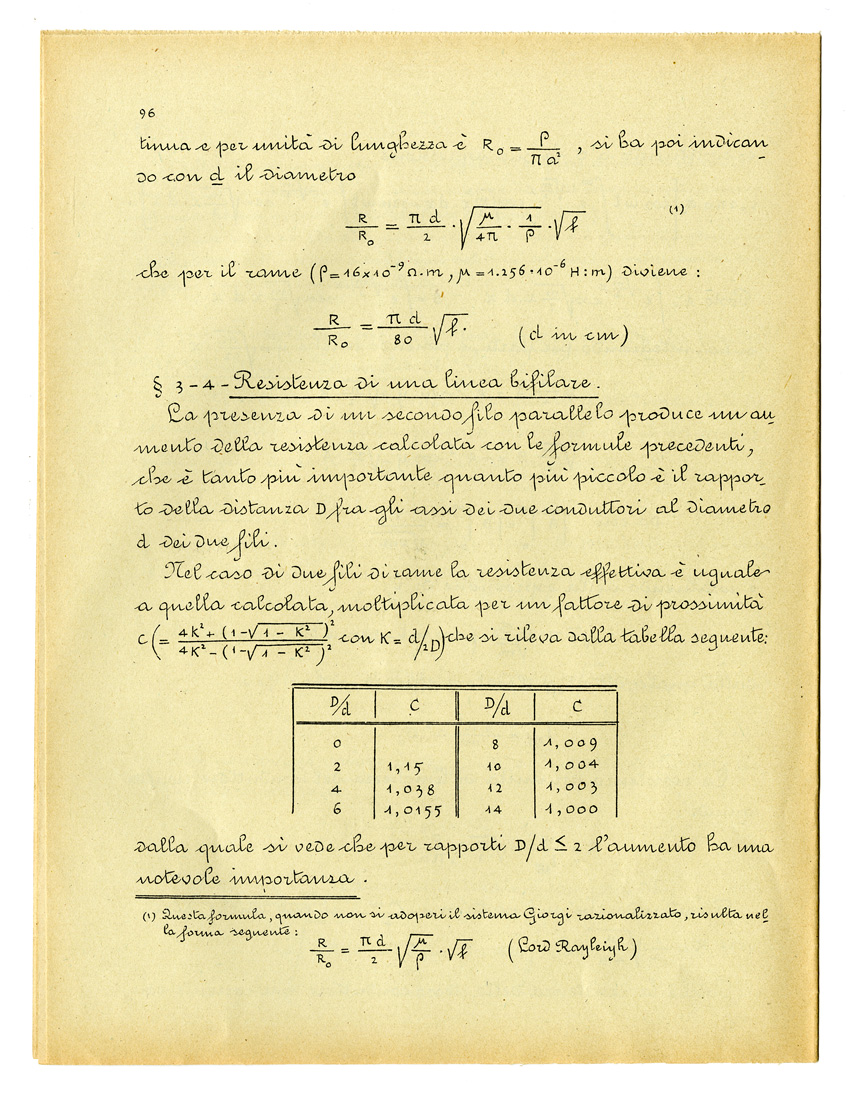 96
tinua e per unità di lunghezza è R₀ = ρ / π a² , si ha poi indican
do con d il diametro
R/R₀ = π d / 2 · √(μ/4π · 1/ρ) · √f (1)
che per il rame (ρ = 16×10⁻⁹ Ω.m , μ = 1.256 · 10⁻⁶ H:m) diviene :
R/R₀ = π d / 80 √f . (d in cm)
§ 3-4 - Resistenza di una linea bifilare .
La presenza di un secondo filo parallelo produce un au
mento della resistenza calcolata con le formule precedenti,
che è tanto più importante quanto più piccolo è il rappor_
to della distanza D fra gli assi dei due conduttori al diametro
d dei due fili .
Nel caso di due fili di rame la resistenza effettiva è uguale
a quella calcolata, moltiplicata per un fattore di prossimità
C (= 4K² + (1-√1 - K² )² / 4K² - (1-√1 - K² )² con K = d/2D) che si rileva dalla tabella seguente:
D/d C D/d C
0 8 1,009
2 1,15 10 1,004
4 1,038 12 1,003
6 1,0155 14 1,000
dalla quale si vede che per rapporti D/d ≤ 2 l'aumento ha una
notevole importanza .
(1) Questa formula, quando non si adoperi il sistema Giorgi razionalizzato, risulta nel
la forma seguente :
R/R₀ = π d / 2 √(μ/ρ) · √f (Lord Rayleigh)